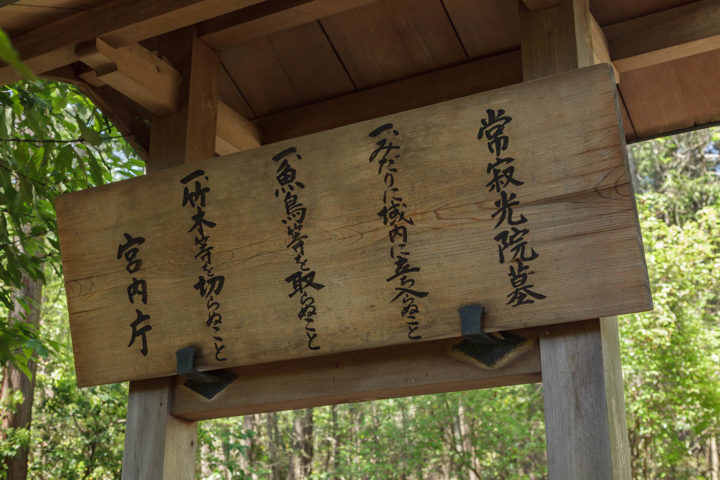 常寂光院墓
一、みだりに域内に立ち入らぬこと
一、魚鳥等を取らぬこと
一、竹木等を切らぬこと
宮内庁